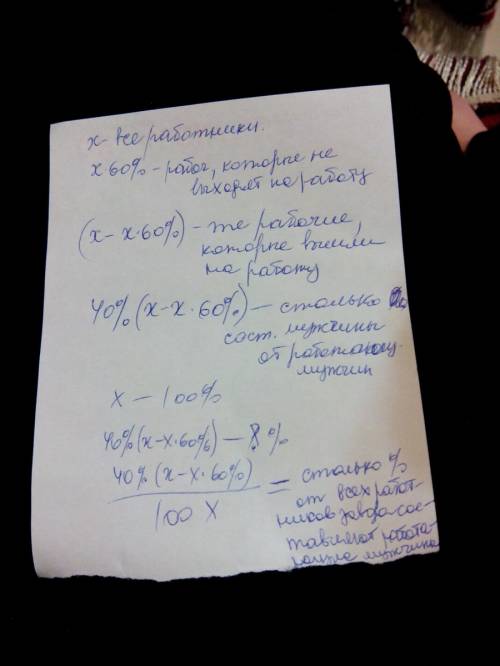 x - все работники.
x·60% - рабоч, которые не
выходят на работу
(x - x·60%) - те рабочие,
которые вышли
на работу
40% (x-x·60%) - столько
сост. мужчины
от
мужчин
x - 100%
40% (x-x·60%) - %
40% (x-x·60%)
100 x
= столько %
от всех работ-
ников завода сос-
тавляют работа-
ющие мужчины